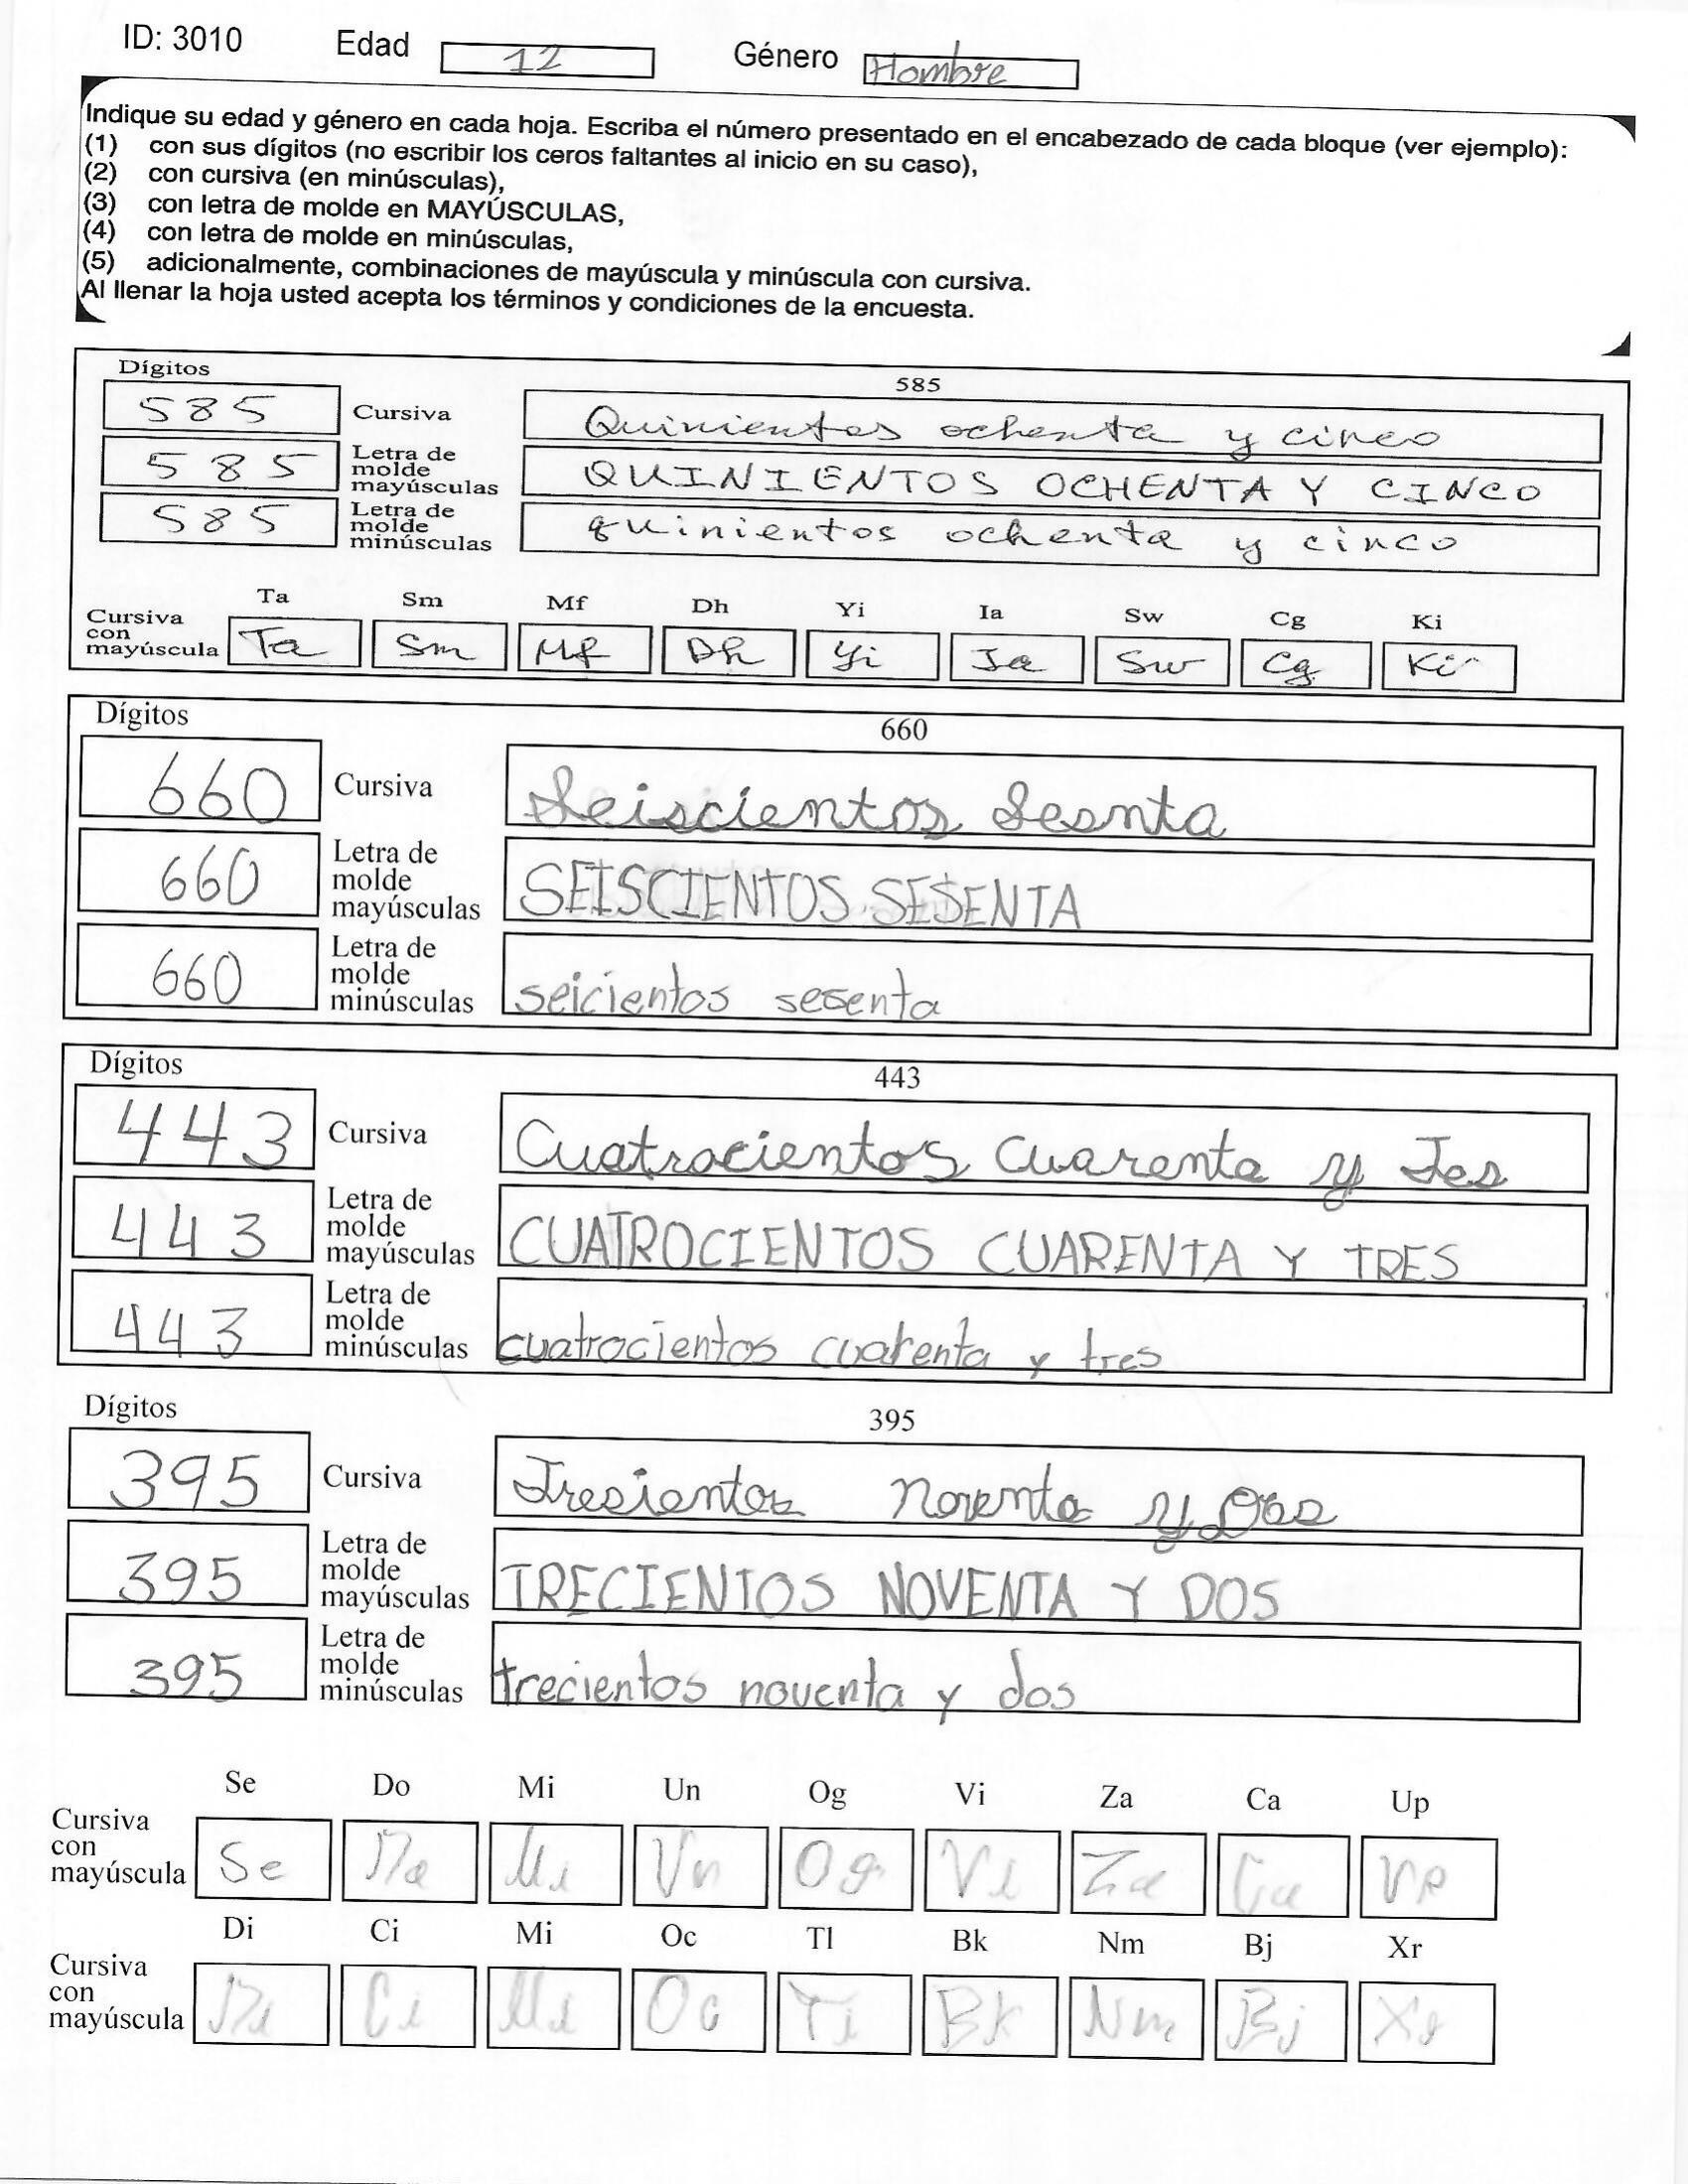 ID: 3010 Edad 12 Género Hombre
Indique su edad y género en cada hoja. Escriba el número presentado en el encabezado de cada bloque (ver ejemplo):
(1) con sus dígitos (no escribir los ceros faltantes al inicio en su caso),
(2) con cursiva (en minúsculas),
(3) con letra de molde en MAYÚSCULAS,
(4) con letra de molde en minúsculas,
(5) adicionalmente, combinaciones de mayúscula y minúscula con cursiva.
Al llenar la hoja usted acepta los términos y condiciones de la encuesta.
Dígitos 585
585 Cursiva Quinientos ochenta y cinco
585 Letra de molde mayúsculas QUINIENTOS OCHENTA Y CINCO
585 Letra de molde minúsculas quinientos ochenta y cinco
Ta Sm Mf Dh Yi Ia Sw Cg Ki
Cursiva con mayúscula Ta Sm Mf Dh Yi Ia Sw Cg Ki
Dígitos 660
660 Cursiva Seiscientos Sesnta
660 Letra de molde mayúsculas SEISCIENTOS SESENTA
660 Letra de molde minúsculas seicientos sesenta
Dígitos 443
443 Cursiva Cuatrocientos Cuarenta y Tes
443 Letra de molde mayúsculas CUATROCIENTOS CUARENTA Y TRES
443 Letra de molde minúsculas cuatrocientos cuarenta y tres
Dígitos 395
395 Cursiva Tresientos noventa y Dos
395 Letra de molde mayúsculas TRECIENTOS NOVENTA Y DOS
395 Letra de molde minúsculas trecientos noventa y dos
Se Do Mi Un Og Vi Za Ca Up
Cursiva con mayúscula Se Do Mi Un Og Vi Za Ca Up
Di Ci Mi Oc Tl Bk Nm Bj Xr
Cursiva con mayúscula Di Ci Mi Oc Ti Bk Nm Bj Xr